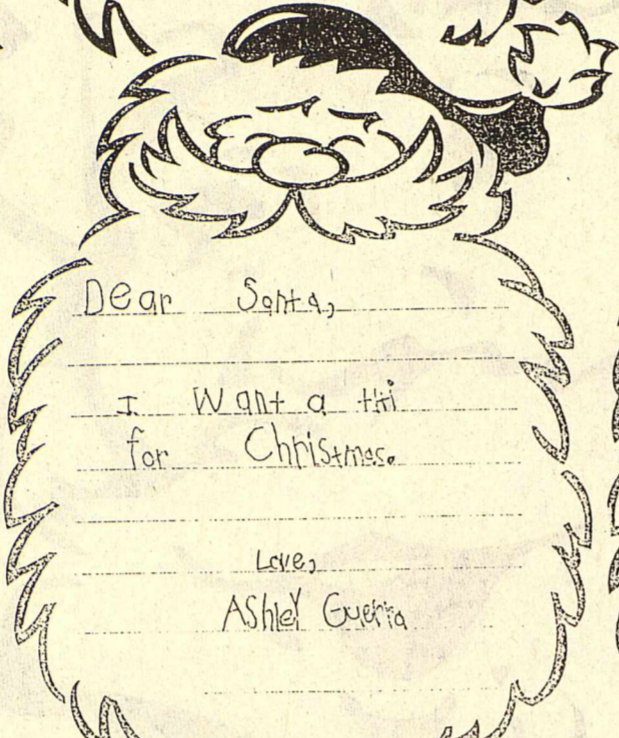 Dear Santa,
I Want a thi
for Christmas.
Love,
AShley Guerra